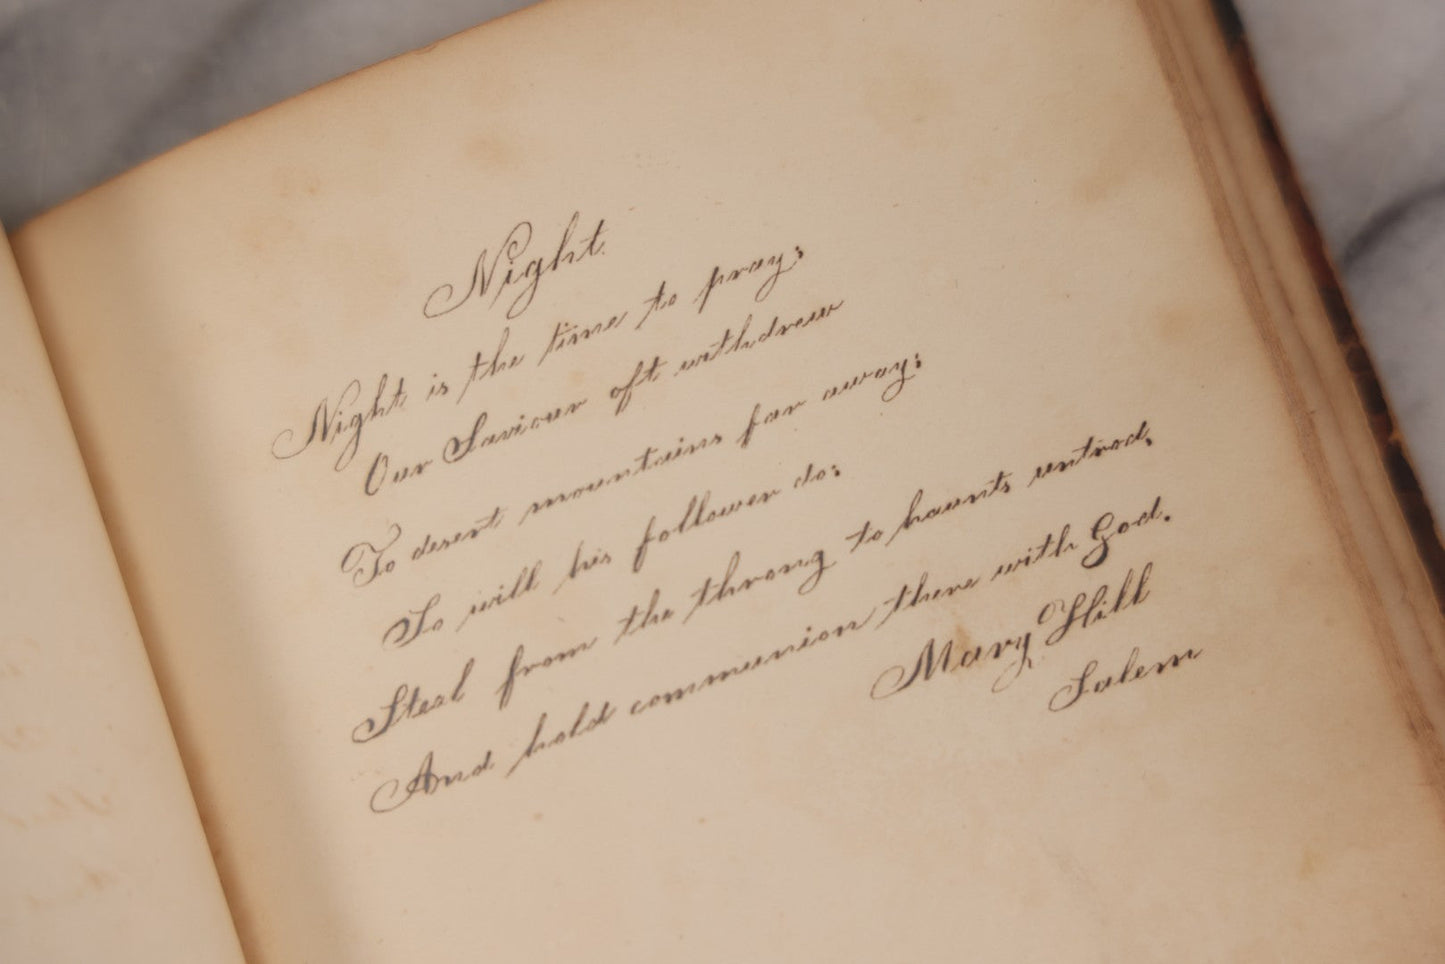 Night.
Night is the time to pray;
Our Saviour oft withdrew
To desert mountains far away;
So will his follower do;
Steal from the throng to haunts untrod,
And hold communion there with God.
Mary Hill
Salem